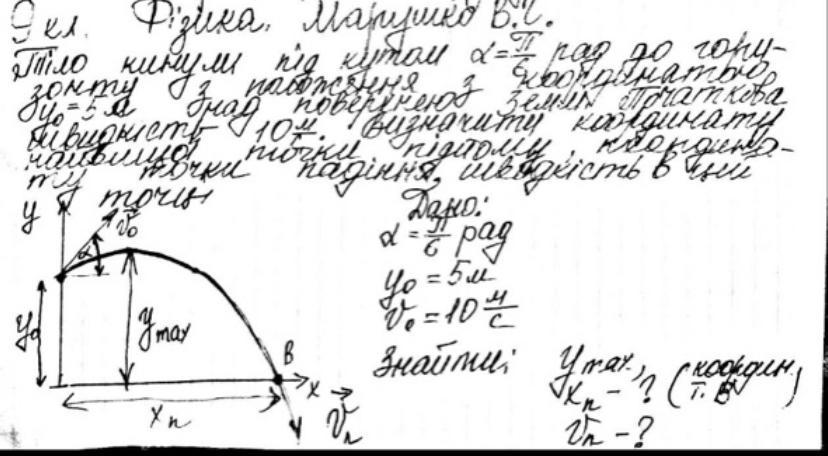 9 кл. Фізика. Марушко В.С.
Тіло кинули під кутом α=π/6 рад до гори-
зонту з положення з координатою
y₀=5м над поверхнею землі. Початкова
швидкість 10 м/с. Визначити координату
найвищої точки підйому, координа-
ту точки падіння, швидкість в цій
точці
Дано:
α=π/6 рад
y₀=5м
v₀=10 м/с
Знайти: ymax,
xп-? (координ. т. В)
vп-?
y
v₀
α
y₀
ymax
B
x
xп
vп